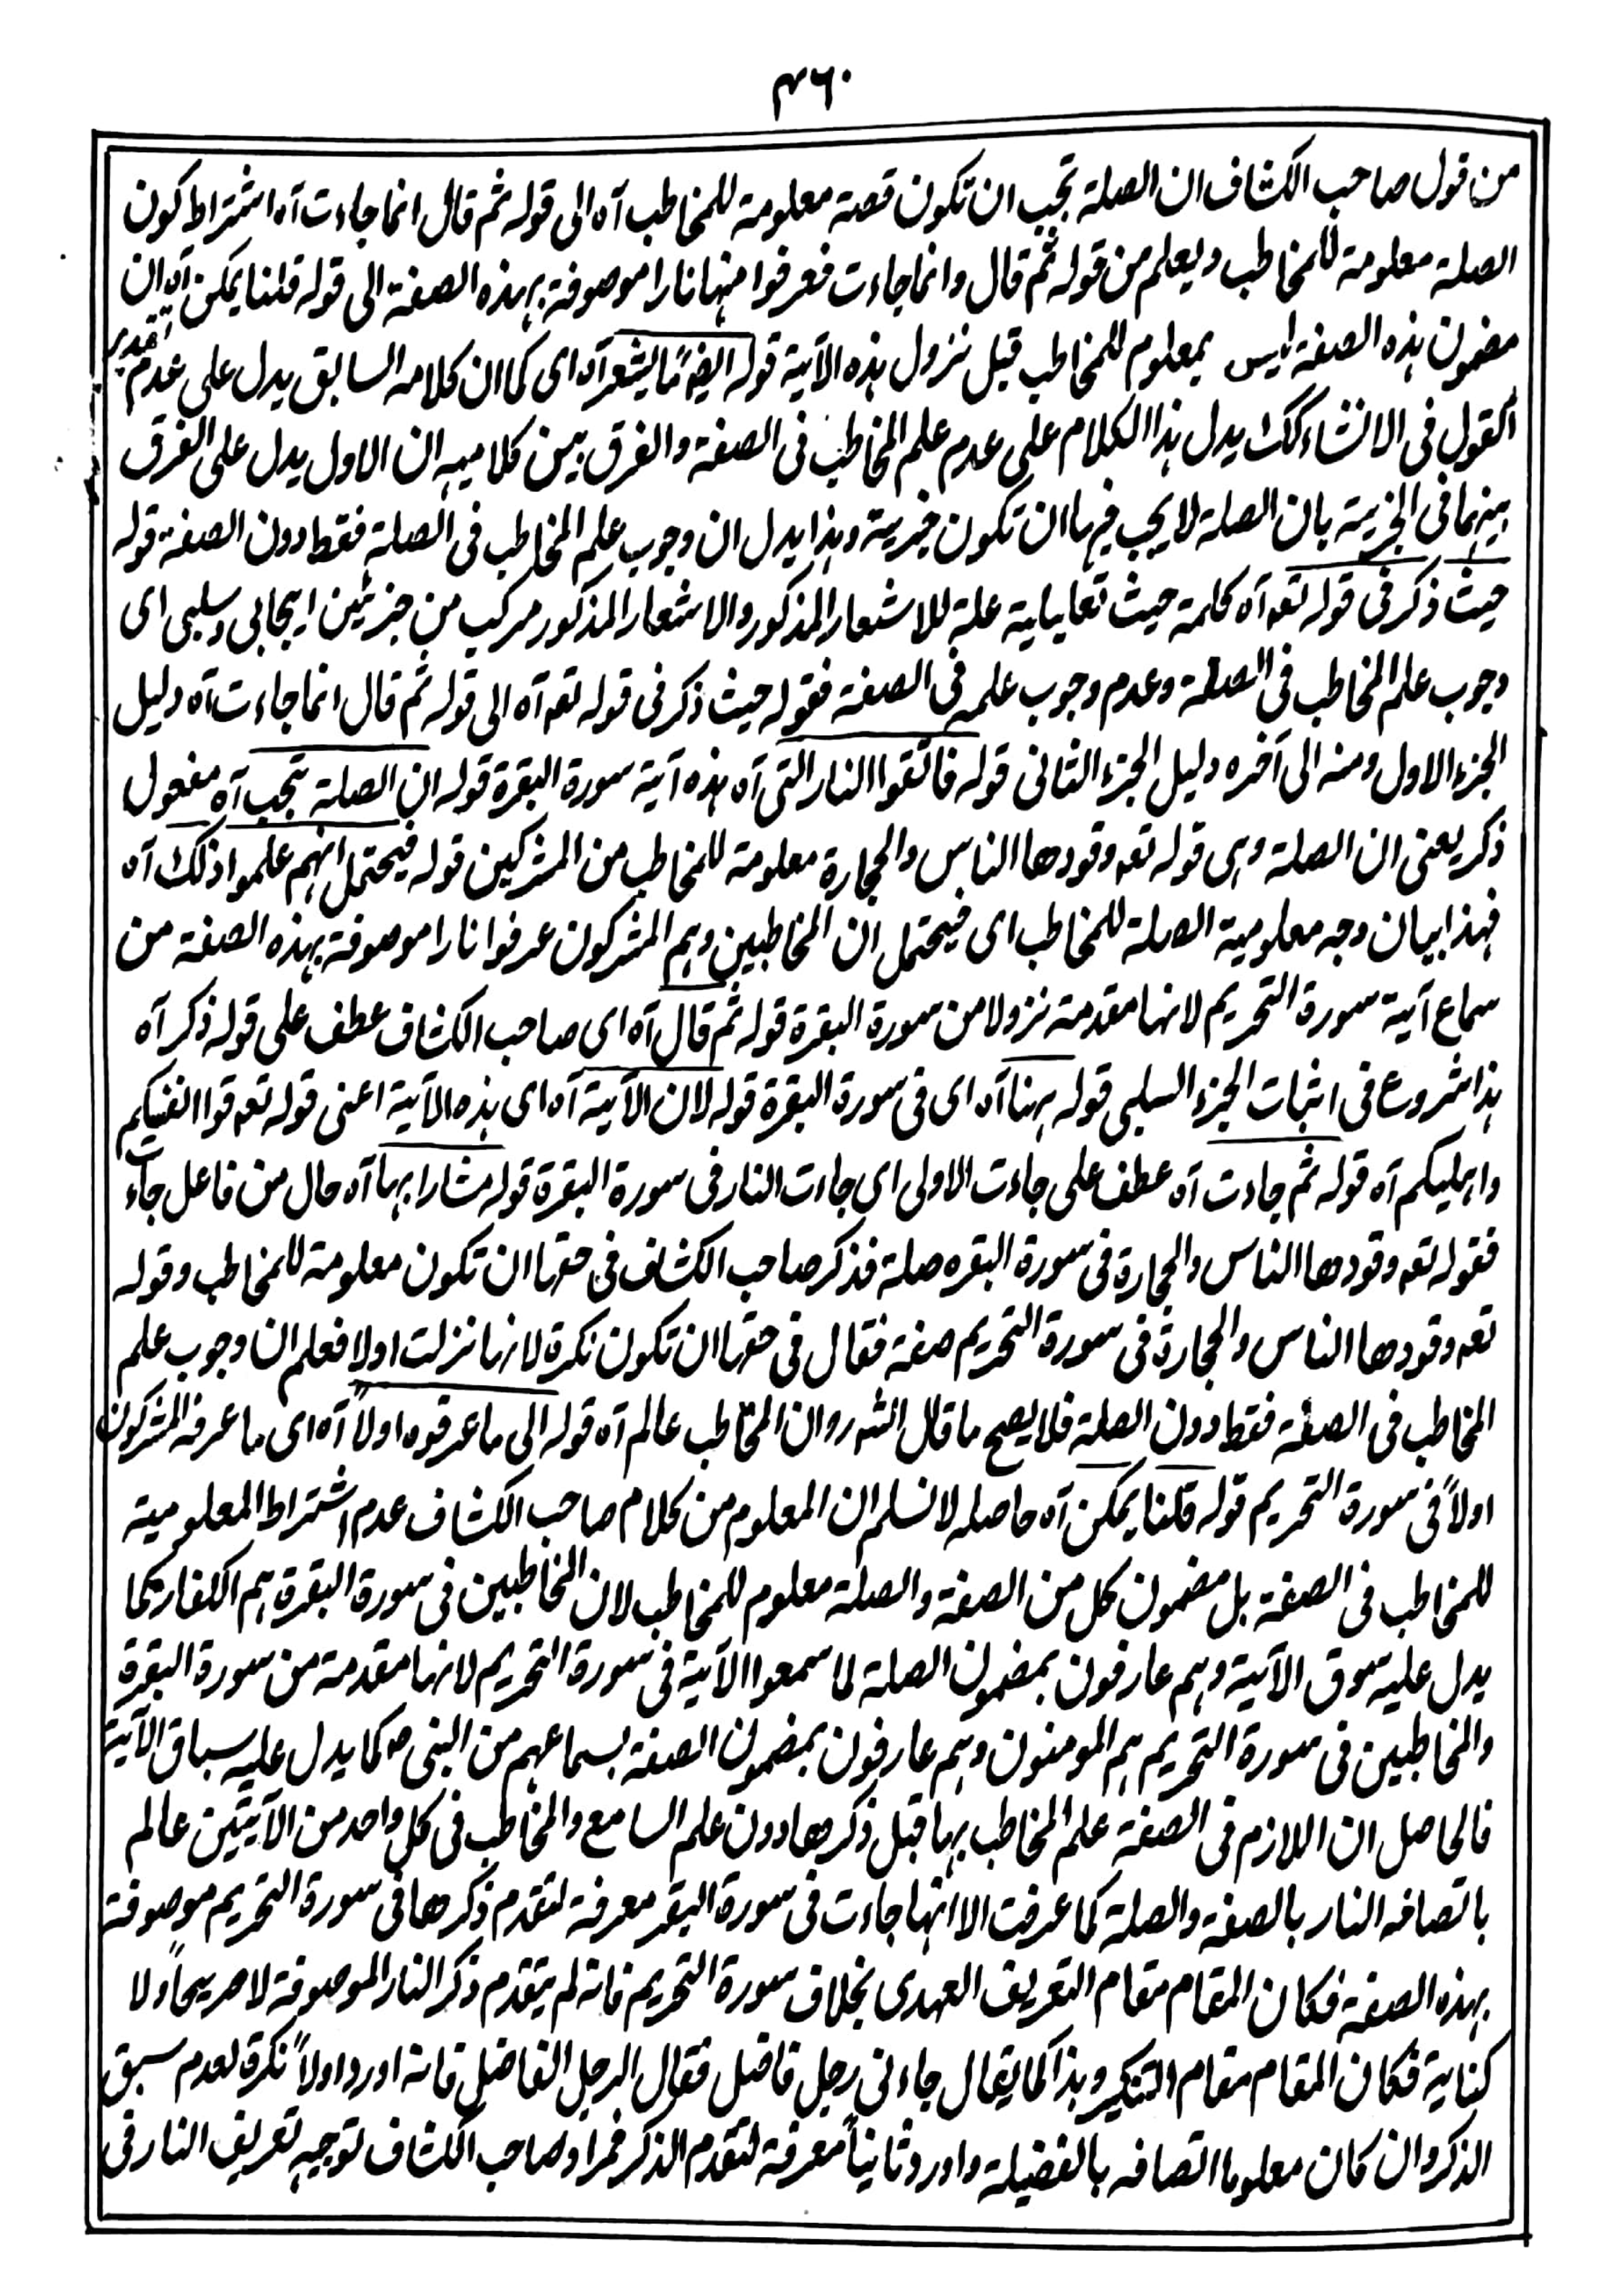 ۴۶۰
من قول صاحب الكشاف ان الصلة تجب ان تكون قصة معلومة للمخاطب آه الى قوله ثم قال انما جاءت آه اشتراط كون
الصلة معلومة للمخاطب ويعلم من قوله ثم قال وانما جاءت فعرفوا منها نارا موصوفة بهذه الصفة الى قوله قلنا يمكن آه ان
مضمون هذه الصفة ليس بمعلوم للمخاطب قبل نزول هذه الآية قوله ايضًا ما يشعر آه اى كما ان كلامه السابق يدل على عدم تقدير
القول فى الانشاء كك يدل هذا الكلام على عدم علم المخاطب فى الصفة والفرق بين كلاميه ان الاول يدل على الفرق
بينهما فى الخبرية بان الصلة لا يجب فيها ان تكون خبرية وهذا يدل ان وجوب علم المخاطب فى الصلة فقط دون الصفة قوله
حيث ذكر فى قوله تعه آه كلمة حيث تعليلية علة للاشعار المذكور والاشعار المذكور مركب من جزئين ايجابى وسلبى اى
وجوب علم المخاطب فى الصلة وعدم وجوب علمه فى الصفة فقوله حيث ذكر فى قوله تعه آه الى قوله ثم قال انما جاءت آه دليل
الجزء الاول ومنه الى آخره دليل الجزء الثانى قوله فاتقوا النار التى آه هذه آية سورة البقرة قوله ان الصلة تجب آه مفعول
ذكر يعنى ان الصلة وهى قوله تعه وقودها الناس والحجارة معلومة للمخاطب من المشركين قوله فيحتمل انهم علموا ذلك آه
فهذا بيان وجه معلومية الصلة للمخاطب اى فيحتمل ان المخاطبين وهم المشركون عرفوا نارا موصوفة بهذه الصفة من
سماع آية سورة التحريم لانها مقدمة نزولا من سورة البقرة قوله ثم قال آه اى صاحب الكشاف عطف على قوله ذكر آه
هذا شروع فى اثبات الجزء السلبى قوله ههنا آه اى فى سورة البقرة قوله لان الآية آه اى هذه الآية اعنى قوله تعه قوا انفسكم
واهليكم آه قوله ثم جاءت آه عطف على جاءت الاولى اى جاءت النار فى سورة البقرة قوله مشارا بها آه حال من فاعل جاءت
فقوله تعه وقودها الناس والحجارة فى سورة البقره صلة فذكر صاحب الكشاف فى حقها ان تكون معلومة للمخاطب وقوله
تعه وقودها الناس والحجارة فى سورة التحريم صفة فقال فى حقها ان تكون نكرة لانها نزلت اولا فعلم ان وجوب علم
المخاطب فى الصفة فقط دون الصلة فلا يصح ما قال الشه روان المخاطب عالم آه قوله الى ما عرفوه اولاً آه اى ما عرفه المشركون
اولاً فى سورة التحريم قوله قلنا يمكن آه حاصله لا نسلم ان المعلوم من كلام صاحب الكشاف عدم اشتراط المعلومية
للمخاطب فى الصفة بل مضمون كل من الصفة والصلة معلوم للمخاطب لان المخاطبين فى سورة البقرة هم الكفار كما
يدل عليه سوق الآية وهم عارفون بمضمون الصلة لما سمعوا الآية فى سورة التحريم لانها مقدمة من سورة البقرة
والمخاطبين فى سورة التحريم هم المومنون وهم عارفون بمضمون الصفة بسماعهم من النبى ص كما يدل عليه سباق الآية
فالحاصل ان اللازم فى الصفة علم المخاطب بها قبل ذكرها دون علم السامع والمخاطب فى كل واحد من الآيتين عالم
باتصاف النار بالصفة والصلة كما عرفت الا انها جاءت فى سورة البقر معرفة لتقدم ذكرها فى سورة التحريم موصوفة
بهذه الصفة فكان المقام مقام التعريف العهدى بخلاف سورة التحريم فانه لم يتقدم ذكر النار الموصوفة لا صريحاً ولا
كناية فكان المقام مقام التنكير وهذا كما يقال جاءنى رجل فاضل فقال الرجل الفاضل فانه اورد اولاً نكرة لعدم سبق
الذكر وان كان معلوما اتصافه بالفضيلة واورد ثانياً معرفة لتقدم الذكر فمراد صاحب الكشاف توجيه تعريف النار فى